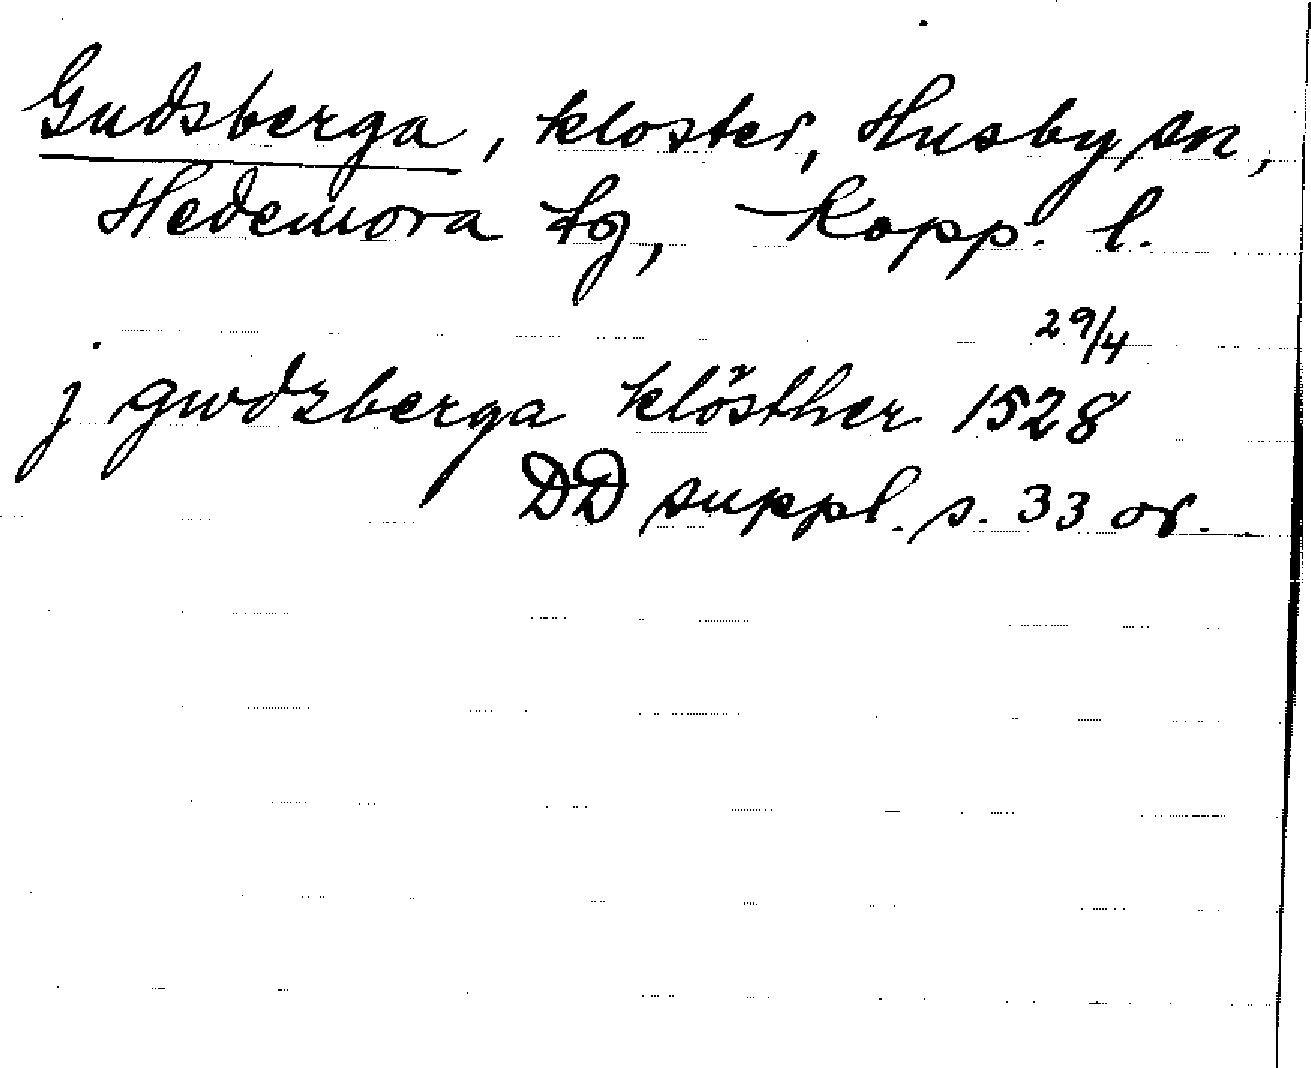 Gudsberga, kloster, Husby sn,
Hedemora tg, Kopp. l.
29/4
j gwdzberga klösther 1528
DD suppl. s. 33 or.